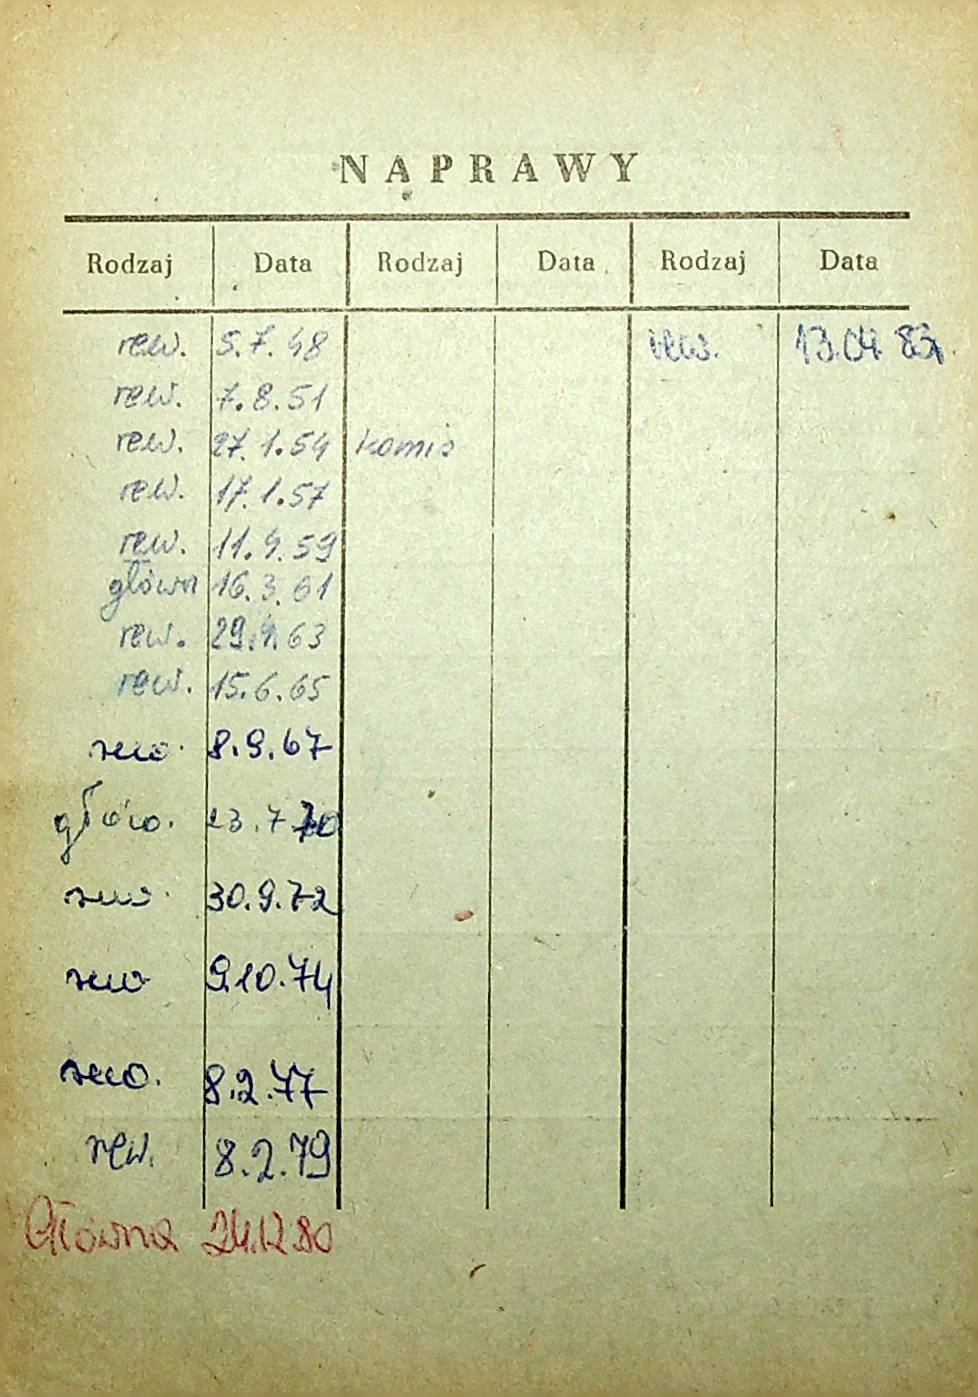 NAPRAWY
Rodzaj Data Rodzaj Data Rodzaj Data
rew. 5.7.48 rew. 13.04.83r.
rew. 7.8.51
rew. 27.1.54 komis
rew. 17.1.57
rew. 11.4.59
główn 16.3.61
rew. 29.4.63
rew. 15.6.65
rew. 8.9.67
główn. 23.7.70
rew. 30.9.72
rew 9.10.74
rew. 8.2.77
rew. 8.2.79
Główna 24.12.80